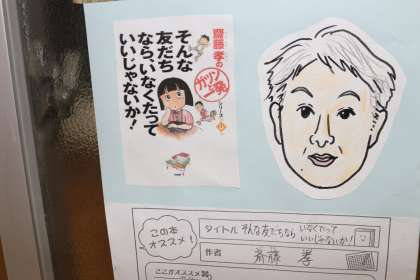 齋藤孝の
ガツン
一発
シリーズ
そんな
友だち
なら、いなくたって
いいじゃないか!
この本
オススメ!
タイトル そんな友だちなら いなくたって
いいじゃないか!
作者 斎藤 孝
ここがオススメ